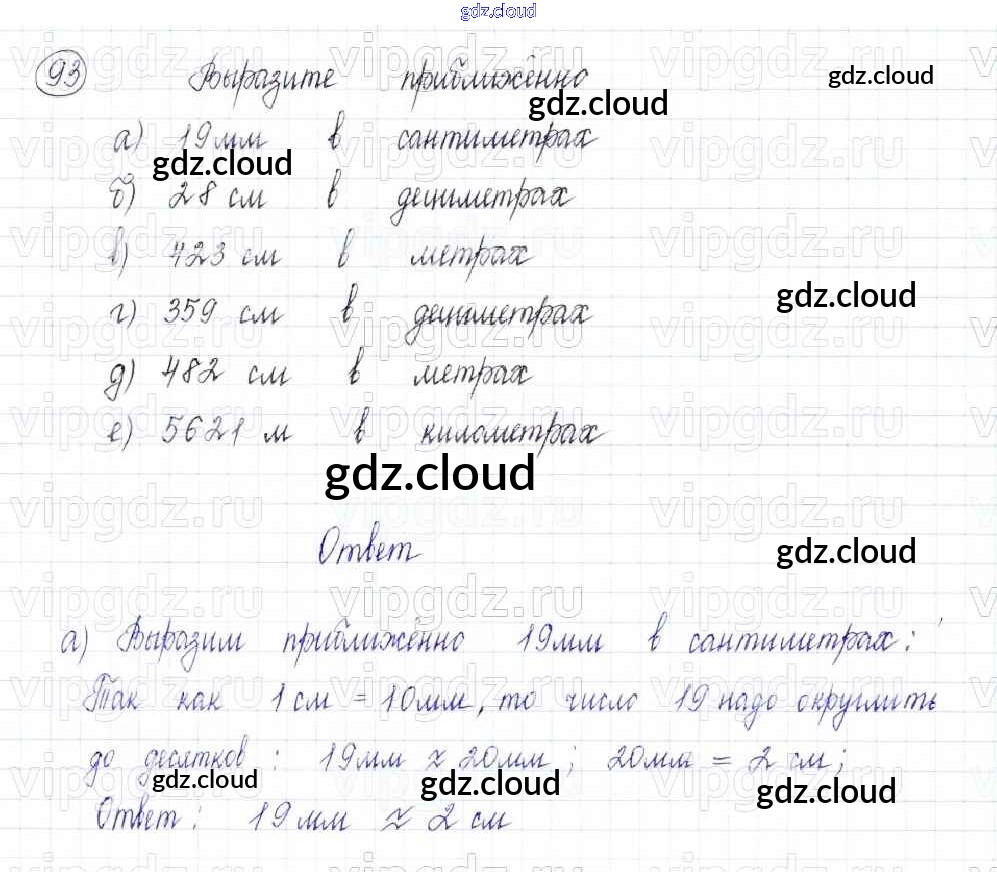 gdz.cloud
93 Выразите приближённо gdz.cloud
gdz.cloud
а) 19 мм в сантиметрах
gdz.cloud
б) 28 см в дециметрах
в) 423 см в метрах
gdz.cloud
г) 359 см в дециметрах
д) 482 см в метрах
е) 5621 м в километрах
gdz.cloud
Ответ
gdz.cloud
а) Выразим приближённо 19мм в сантиметрах:
Так как 1 см = 10мм, то число 19 надо округлить
до десятков: 19мм ≈ 20мм; 20мм = 2 см;
gdz.cloud gdz.cloud gdz.cloud
Ответ: 19 мм ≈ 2 см
vipgdz.ru